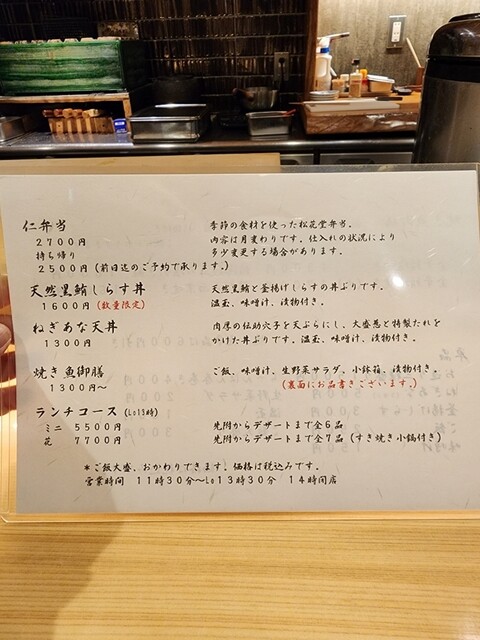 仁弁当 季節の食材を使った松花堂弁当。
2700円 内容は月変わりです。仕入れの状況により
持ち帰り 多少変更する場合があります。
2500円(前日迄のご予約で承ります。)
天然黒鮪しらす丼 天然黒鮪と釜揚げしらすの丼ぶりです。
1600円(数量限定) 温玉、味噌汁、漬物付き。
ねぎあな天丼 肉厚の伝助穴子を天ぷらにし、大盛葱と特製たれを
1300円 かけた丼ぶりです。温玉、味噌汁、漬物付き。
焼き魚御膳 ご飯、味噌汁、生野菜サラダ、小鉢箱、漬物付き。
1300〜 (裏面にお品書きございます。)
ランチコース(Lo13時)
ミニ 5500円 先附からデザートまで全6品
花 7700円 先附からデザートまで全7品(すき焼き小鍋付き)
*ご飯大盛、おかわりできます。価格は税込みです。
営業時間 11時30分〜Lo13時30分 14時閉店